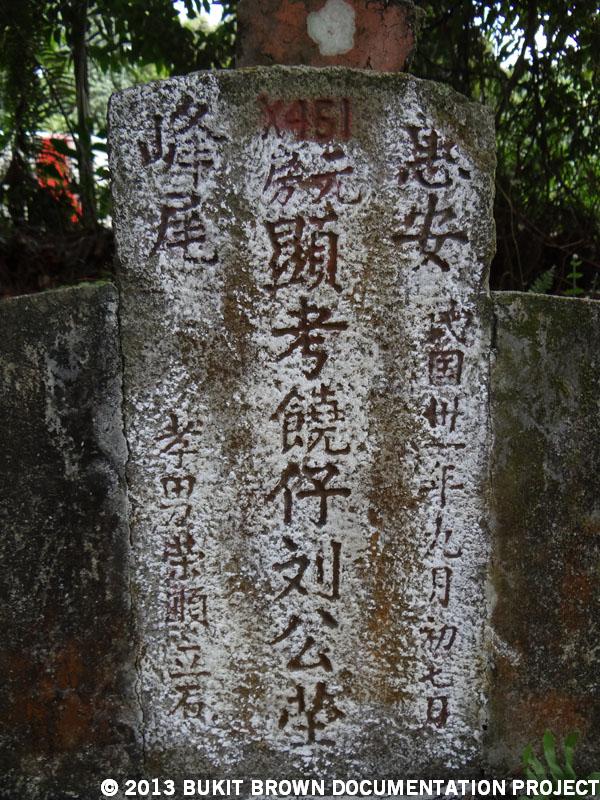 X451
惠安
民国卅一年九月初七日
元
顯考饒仔刘公茔
峰尾
孝男荣順立石
© 2013 BUKIT BROWN DOCUMENTATION PROJECT